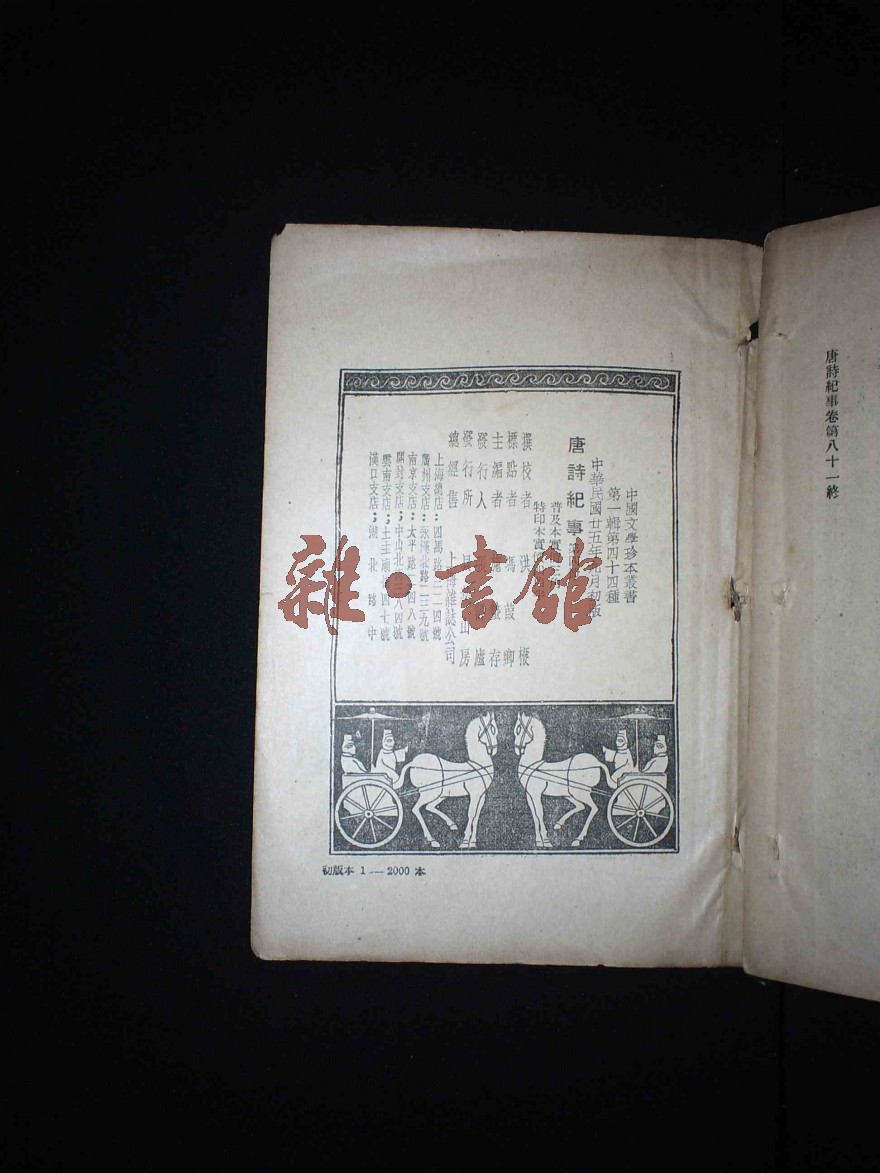 唐詩紀事卷第八十一終
中國文學珍本叢書
第一輯第四十四種
中華民國廿五年 月初版
唐詩紀事
普及本實
特印本實
撰校者 洪 楩
標點者 馮葭卿
主編者 存
發行人 廬
發行所 山房
總經售 上海雜誌公司
上海總店：四馬路三二四號
廣州支店：永漢北路二三九號
南京支店：太平路 四八號
開封支店：中山北 八四號
雲南支店；土主廟 四七號
漢口支店；湖北路中
初版本 1 — 2000 本
雜·書館